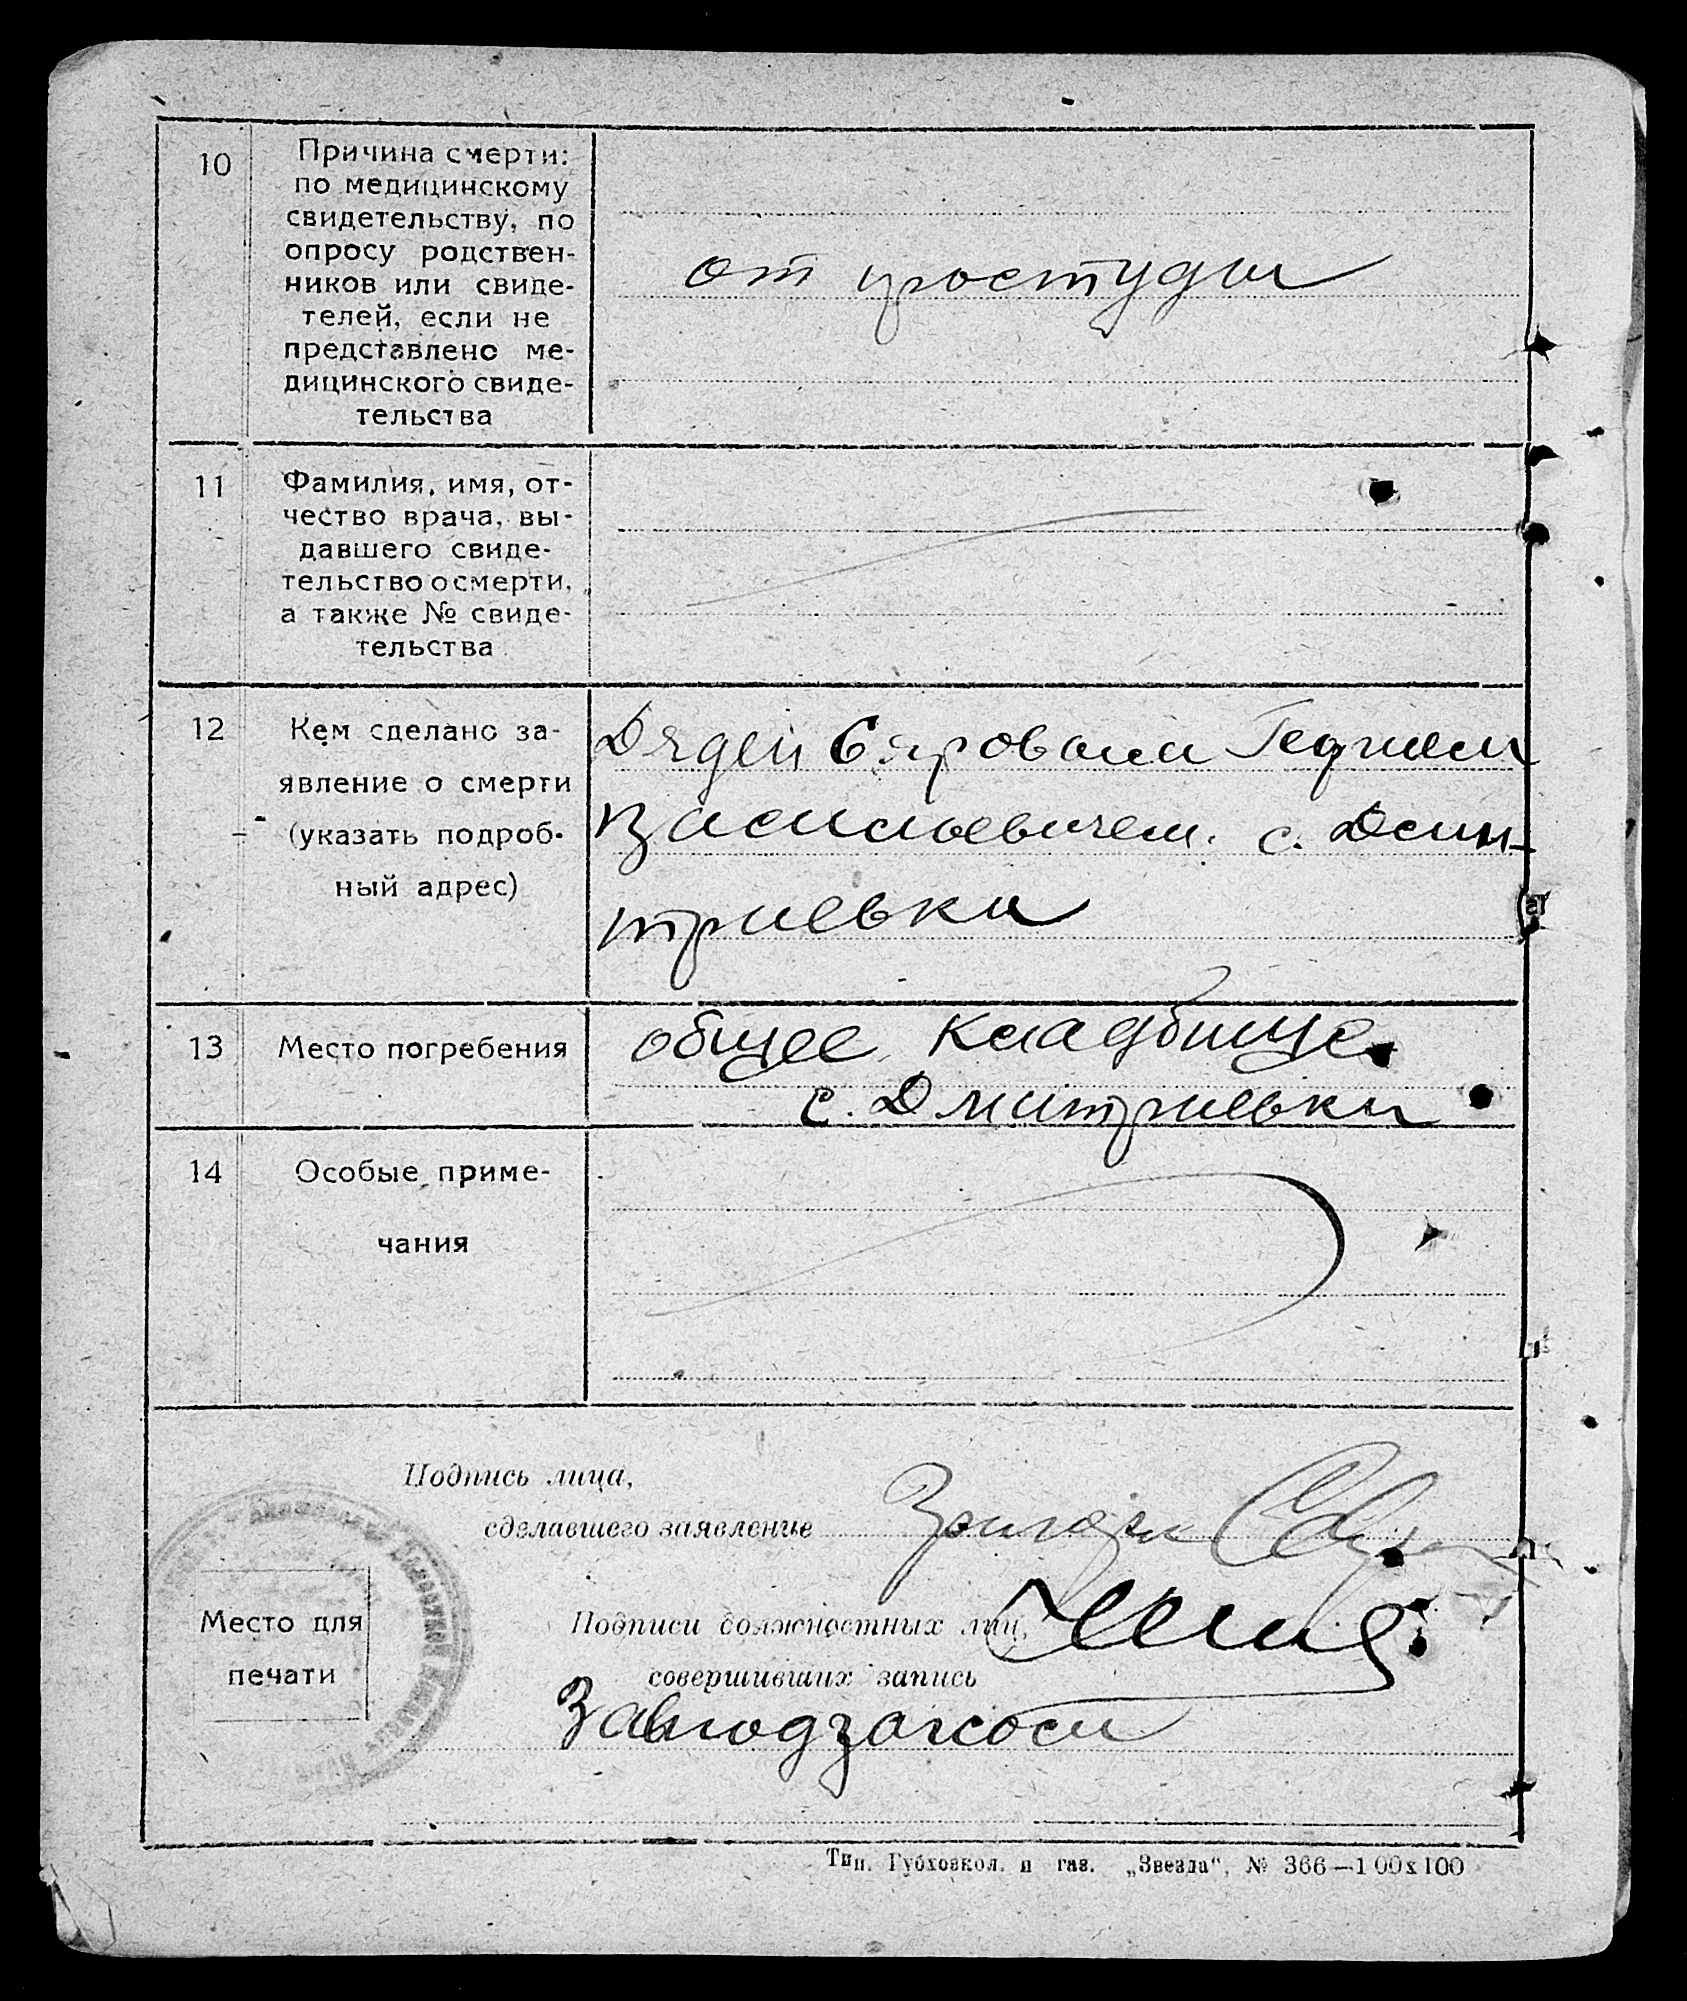 10
Причина смерти:
по медицинскому
свидетельству, по
опросу родствен-
ников или свиде-
телей, если не
представлено ме-
дицинского свиде-
тельства
от простуды
11
Фамилия, имя, от-
чество врача, вы-
давшего свиде-
тельство о смерти,
а также № свиде-
тельства
12
Кем сделано за-
явление о смерти
(указать подроб-
ный адрес)
Дядей
Васильевичем. с. Дми-
триевки
13
Место погребения
общее кладбище
с. Дмитриевки
14
Особые приме-
чания
Подпись лица,
сделавшего заявление
Место для
печати
Подписи должностных лиц,
совершивших запись
Завподзагсом
Тип. Губховкол. и газ. „Звезда“, № 366—100х100